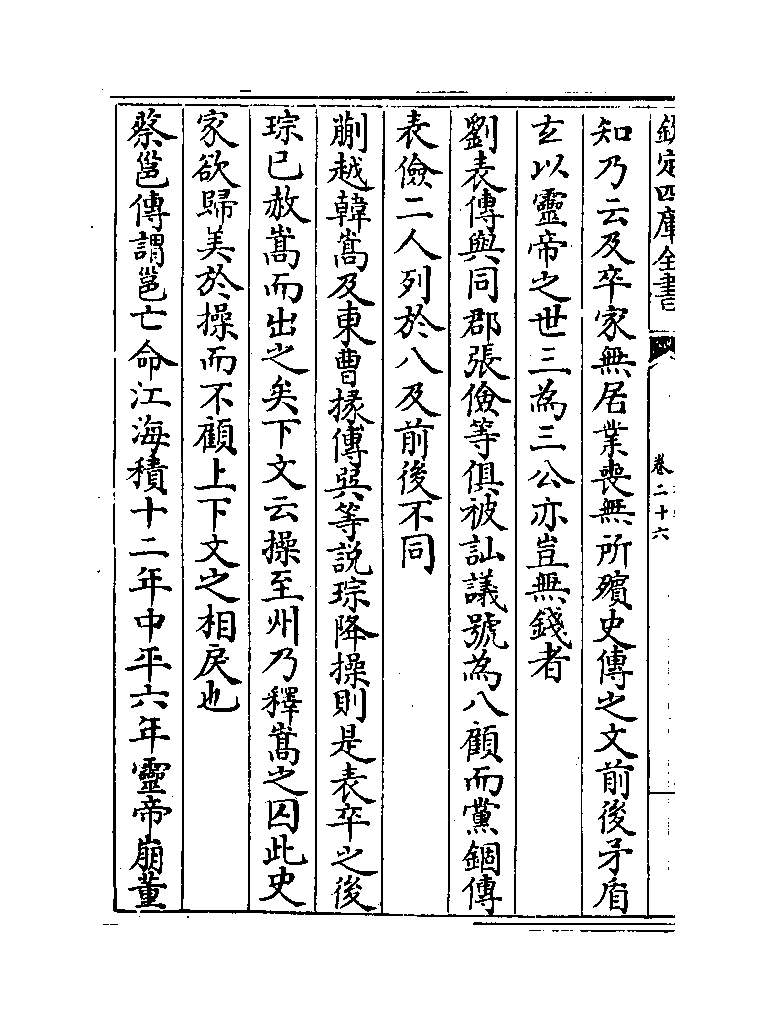 欽定四庫全書
卷二十六
知乃云及卒家無居業喪無所殯史傳之文前後矛盾
玄以靈帝之世三為三公亦豈無錢者
劉表傳與同郡張儉等俱被訕議號為八顧而黨錮傳
表儉二人列於八及前後不同
蒯越韓嵩及東曹掾傅巽等説琮降操則是表卒之後
琮已赦嵩而出之矣下文云操至州乃釋嵩之囚此史
家欲歸美於操而不顧上下文之相戾也
蔡邕傳謂邕亡命江海積十二年中平六年靈帝崩董